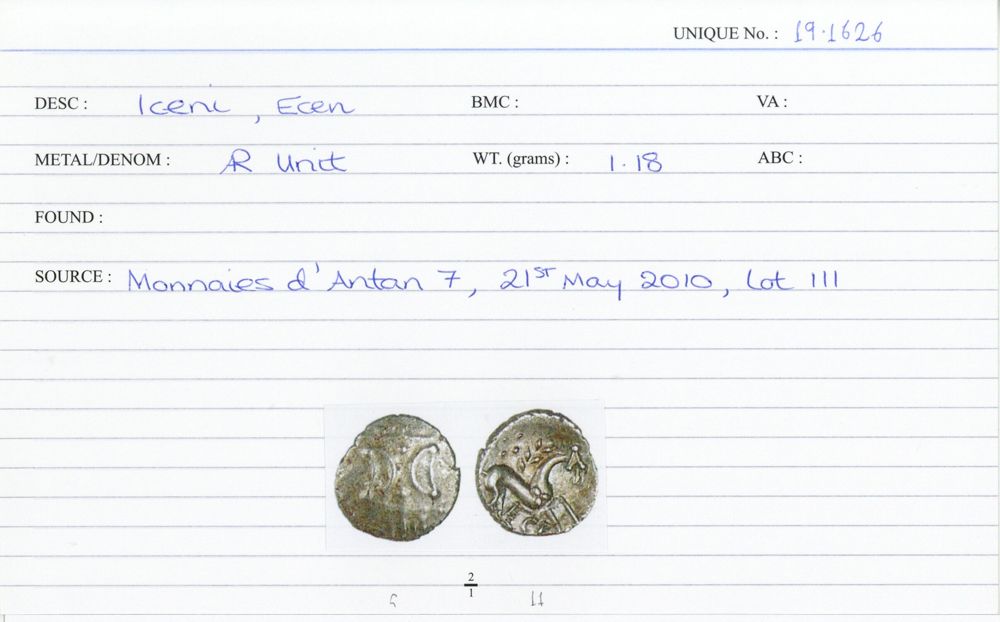 UNIQUE No. : 19.1626
DESC : Iceni, Ecen BMC : VA :
METAL/DENOM : AR Unit WT. (grams) : 1.18 ABC :
FOUND :
SOURCE : Monnaies d'Antan 7, 21ST May 2010, Lot 111
2
1